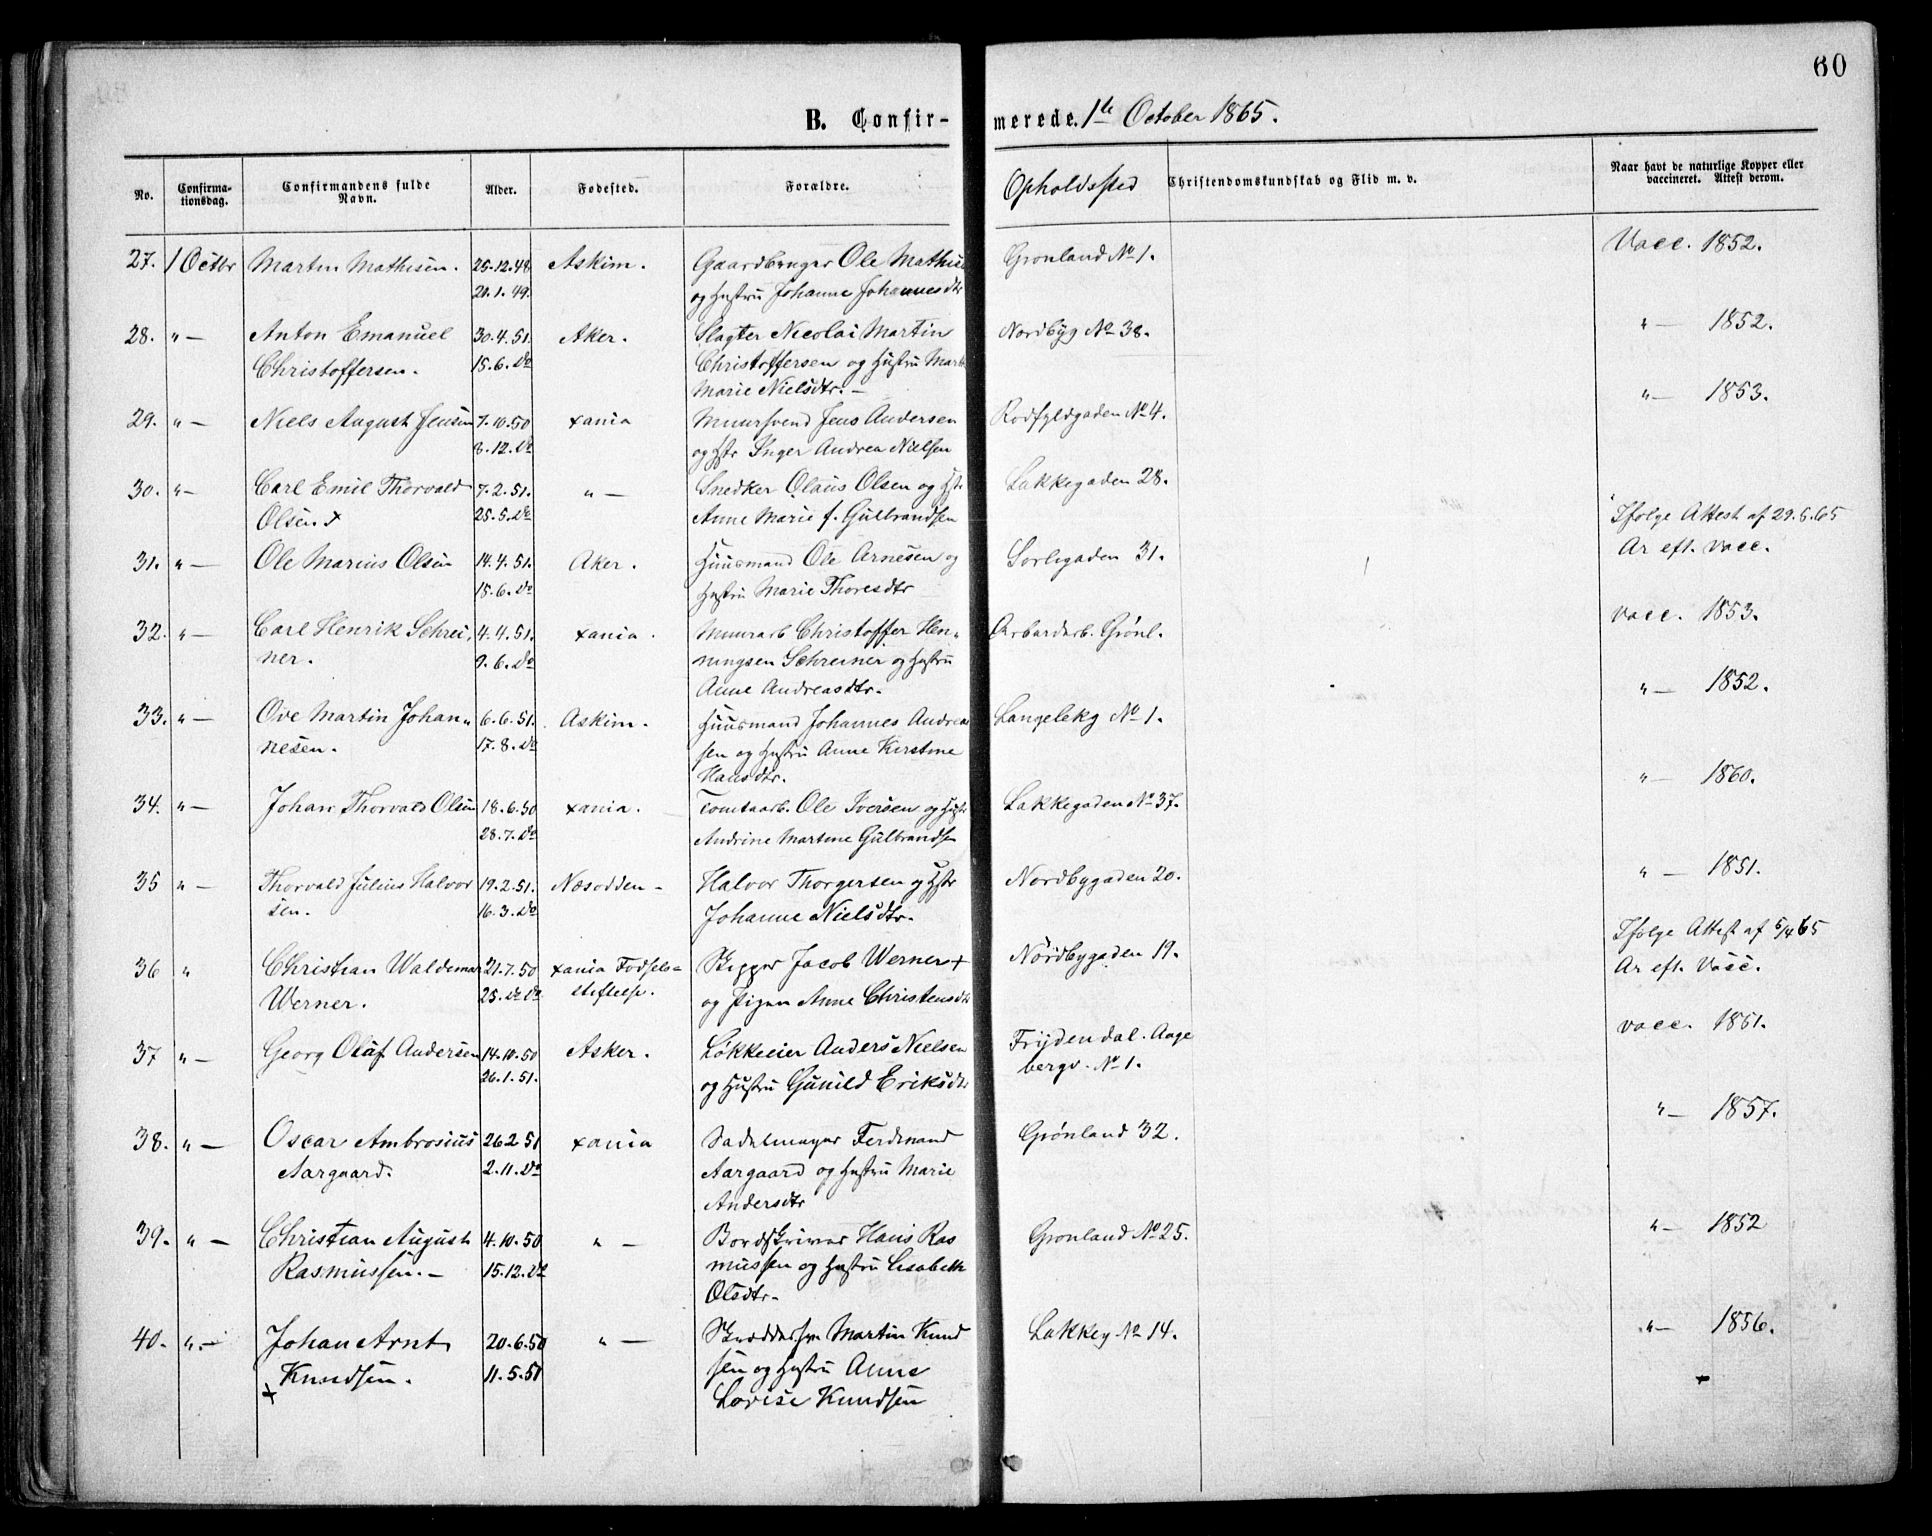 60
B. Confir- merede. 1te October 1865.
No. Confirma-tionsdag. Confirmandens fulde Navn. Alder. Fødested. Forældre. Opholdssted Christendomskundskab og Flid m. v. Naar havt de naturlige Kopper eller vaccineret. Attest derom.
27. 1 Octbr Martin Mathisen. 25.12.48 Askim. Gaardbruger Ole Mathis Grønland No 1. Vacc. 1852.
20.1.49. og Hustru Johanne Johannesdtr
28. " — Anton Emanuel 30.4.51. Aker. Slagter Nicolai Martin Nordbyg No 38. " — 1852.
Christoffersen. 15.6. Do Christoffersen og Hustru Mart
Marie Nielsdtr. —
29. " — Niels August Jensen 7.10.50 xania Muursvend Jens Andersen Rodfyldgaden No 4. " — 1853.
8.12. Do og Hstr Inger Andrea Nielsen
30. " — Carl Emil Thorvald 7.2.51. " — Snedker Olaus Olsen og Hst. Lakkegaden 28.
Olsen. x 25.5. Do Anne Marie f. Gulbrandsen Ifølge Attest af 29.6.65
31. " — Ole Marius Olsen 14.4.51. Aker. Huusmand Ole Arnesen og Sorligaden 31. Ar eft. vacc.
15.6. Do Hustru Marie Thoresdtr
32. " — Carl Henrik Schrei, 4.4.51. xania. Muurarb Christoffer Hen„ Arbardarb. Grønl. vacc. 1853.
ner. 9.6. Do ningsen Schreiner og Hustru
Anne Andreasdtr.
33. " — Ove Martin Johan„ 6.6.51. Askim. Huusmand Johannes Andrea Langelekg No 1. " — 1852.
nesen. 17.8. Do sen og Hustru Anne Kirstine
Hansdtr.
34. " — Johan Thorvald Olsen 18.6.50 xania. Tomtaarb. Ole Iversen og Hustr Lakkegaden No 37. " — 1860.
28.7. Do Andrine Martine Gulbrandsen
35 " — Thorvald Julius Halvor 19.2.51. Næsodden — Halvor Thorgersen og Hstr Nordbygaden 20. " — 1851.
sen. 16.3. Do Johanne Nielsdtr.
36 " Christian Waldemar 21.7.50 xania Fødsels= Skipper Jacob Werner + Nordbygaden 19. Ifølge Attest af 5/4 65
Werner. 25. Do Do stiftelse. og Pigen Anne Christensdtr Ar eft. Vacc.
37 " — Georg Olaf Andersen 14.10.50 Asker. Løkkeeier Anders Nielsen Frydendal. Aage vacc. 1861.
26.1.51. og Hustru Gunild Eriksdtr bergv. No 1.
38. " — Oscar Ambrosius 26 2 51 xania Sadelmager Ferdinand Grønland 32. " — 1857.
Aargaard. 2.11. Do Aargaard og Hustru Marie
Andersdtr
39. " — Christian August 4.10.50 " — Bordskriver Hans Ras Grønland No 25. " — 1852
Rasmussen. — 15.12. Do mussen og Hustru Lisabeth
Olsdtr.
40. " — Johan Arnt 20.6.50 " — Skræddersv Martin Knud Lakkeg No 14. " — 1856.
x Knudsen. 11.5.51 sen og Hustru Anne
Lovise Knudsen